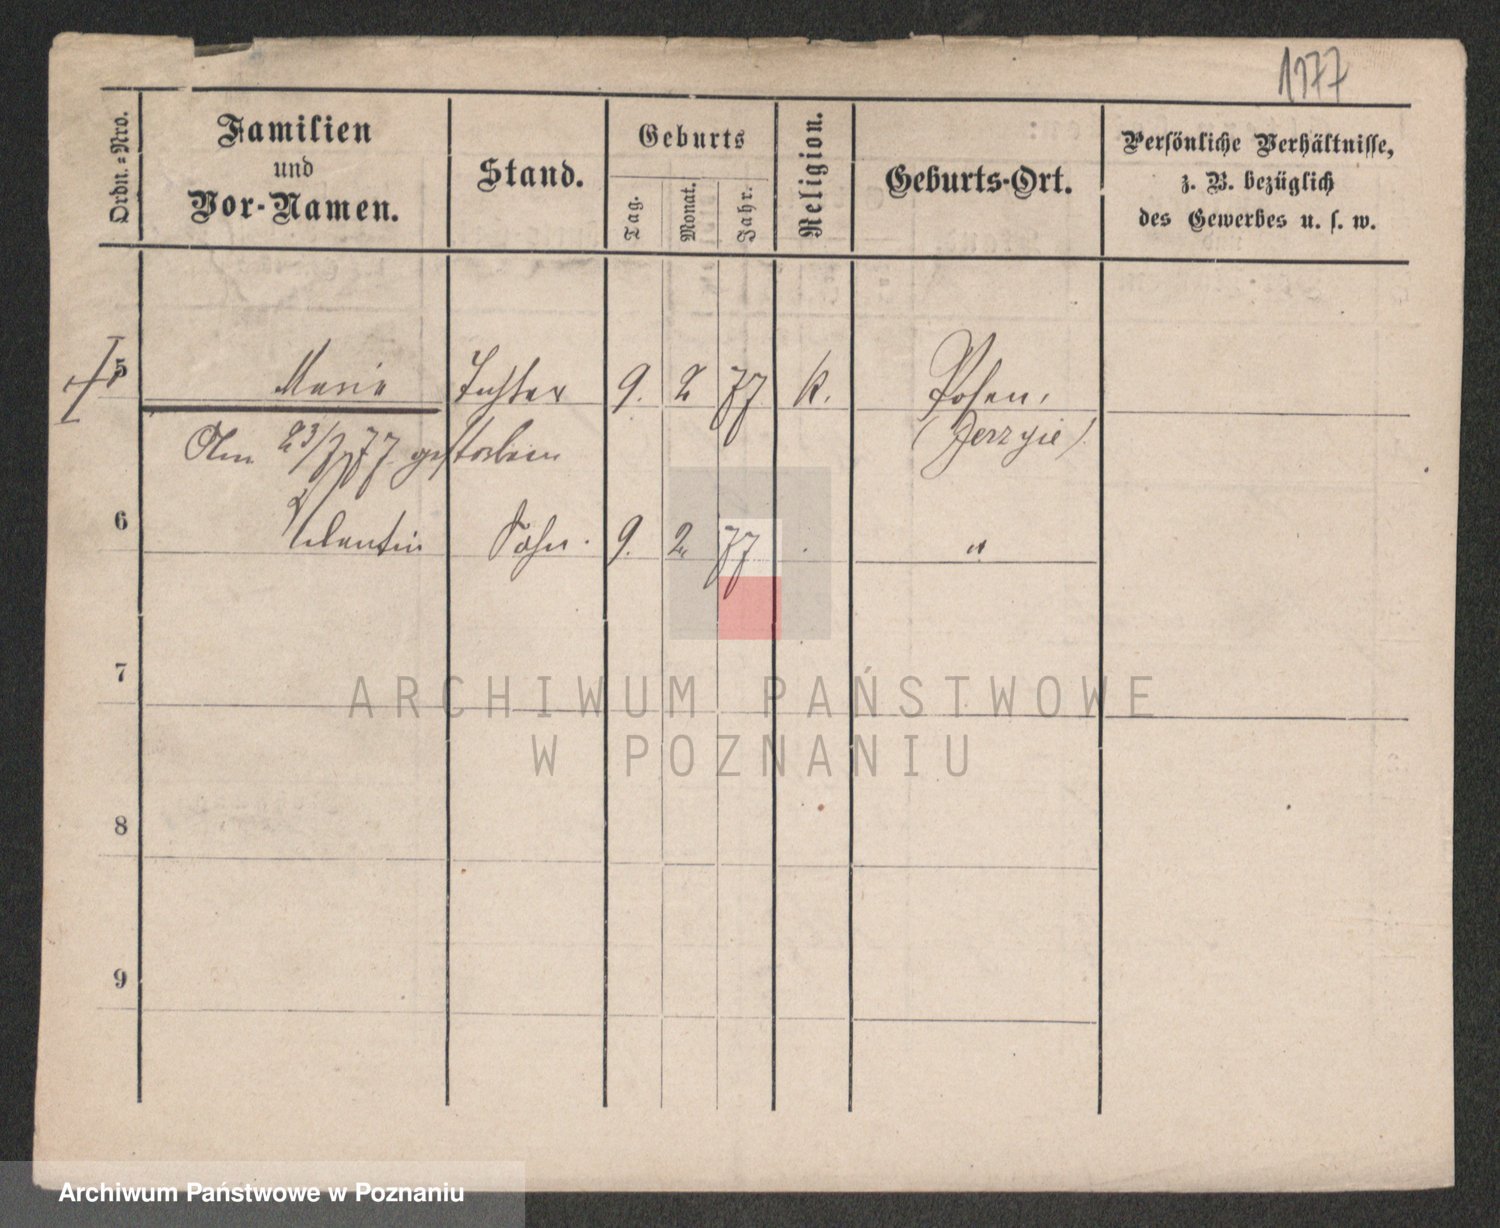 1177
Ordn.=Nro.
Familien
und
Vor-Namen.
Stand.
Geburts
Tag.
Monat.
Jahr.
Religion.
Geburts-Ort.
Persönliche Verhältnisse,
z. B. bezüglich
des Gewerbes u. s. w.
5 Marie Tochter 9. 2 77 K. Posen,
(Jerzyce)
Am 23/7 77 gestorben
6 Valentin Sohn. 9. 2. 77 "
7
8
9
ARCHIWUM PAŃSTWOWE
W POZNANIU
Archiwum Państwowe w Poznaniu